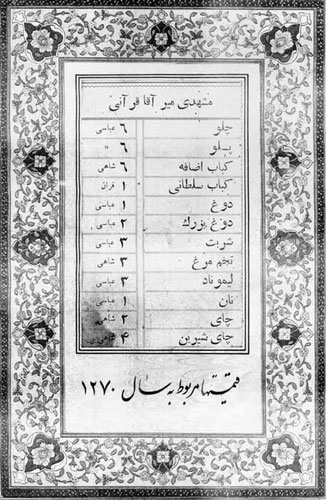 مشهدی میر آقا قرآنی
چلو ٦ عباسی
پلو ٦ "
کباب اضافه ٦ شاهی
کباب سلطانی ١ قران
دوغ ١ عباسی
دوغ بزرک ٢ عباسی
شربت ٣ عباسی
تخم مرغ ٣ شاهی
لیموناد ٣ عباسی
نان ١ عباسی
چای ٢ شاهی
چای شیرین ۴ شاهی
قیمتها مربوط به سال ١٢٧٠